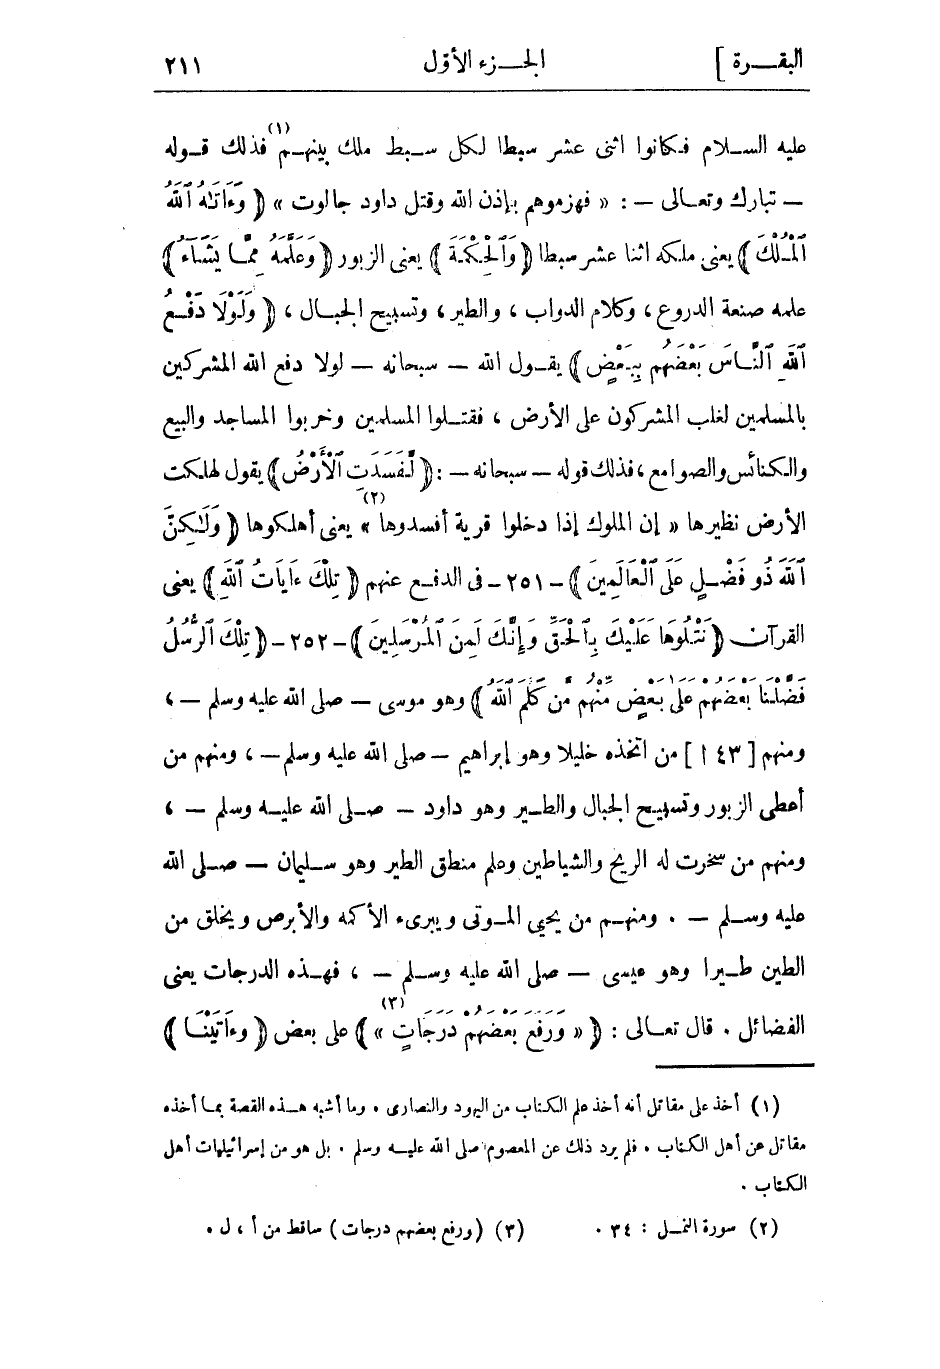 البقــرة ] الجــزء الأول ٢١١
عليه الســلام فكانوا اثنى عشر سبطا لكل سـبط ملك بينهـم (١) فذلك قـوله
— تبارك وتعـالى — : « فهزموهم بإذن الله وقتل داود جالوت » ﴿ وَءَاتَىٰهُ ٱللَّهُ
ٱلْمُلْكَ ﴾ يعنى ملكه اثنا عشر سبطا ﴿ وَٱلْحِكْمَةَ ﴾ يعنى الزبور ﴿ وَعَلَّمَهُ مِمَّا يَشَآءُ ﴾
علمه صنعة الدروع ، وكلام الدواب ، والطير ، وتسبيح الجبـال ، ﴿ وَلَوْلَا دَفْـعُ
ٱللَّهِ ٱلنَّـاسَ بَعْضَهُم بِبَعْضٍ ﴾ يقـول الله — سبحانه — لولا دفع الله المشركين
بالمسلمين لغلب المشركون على الأرض ، فقتـلوا المسلمين وخربوا المساجد والبيع
والكنائس والصوامع ، فذلك قوله — سبحانه — : ﴿ لَّفَسَدَتِ ٱلْأَرْضُ ﴾ يقول لهلكت
الأرض نظيرها « إن الملوك إذا دخلوا قرية أفسدوها (٢) » يعنى أهلكوها ﴿ وَلَـٰكِنَّ
ٱللَّهَ ذُو فَضْـلٍ عَلَى ٱلْعَالَمِينَ ﴾ - ٢٥١ - فى الدفـع عنهم ﴿ تِلْكَ ءَايَاتُ ٱللَّهِ ﴾ يعنى
القرآن ﴿ نَتْلُوهَا عَلَيْكَ بِٱلْحَقِّ وَإِنَّكَ لَمِنَ ٱلْمُرْسَلِينَ ﴾ - ٢٥٢ - ﴿ تِلْكَ ٱلرُّسُلُ
فَضَّلْنَا بَعْضَهُمْ عَلَىٰ بَعْضٍ مِّنْهُم مَّن كَلَّمَ ٱللَّهُ ﴾ وهو موسى — صلى الله عليه وسلم — ،
ومنهم [ ٤٣ أ ] من اتخذه خليلا وهو إبراهيم — صلى الله عليه وسلم — ، ومنهم من
أعطى الزبور وتسبيح الجبال والطـير وهو داود — صـلى الله عليـه وسلم — ،
ومنهم من سخرت له الريح والشياطين وعلم منطق الطير وهو سـليمان — صـلى الله
عليه وسـلم — . ومنهـم من يحيى المـوتى ويبرىء الأكمه والأبرص ويخلق من
الطين طـيرا وهو عيسى — صلى الله عليه وسـلم — ، فهـذه الدرجات يعنى
الفضائل . قال تعـالى : ﴿ « وَرَفَعَ بَعْضَهُمْ دَرَجَاتٍ (٣) » ﴾ على بعض ﴿ وءَاتَيْنَـا ﴾
(١) أخذ على مقاتل أنه أخذ علم الكتاب من اليهود والنصارى . وما أشبه هـذه القصة بمـا أخذه
مقاتل عن أهل الكتاب . فلم يرد ذلك عن المعصوم صلى الله عليـه وسلم . بل هو من إسرائيليات أهل
الكتاب .
(٢) سورة النمـل : ٣٤ . (٣) (ورفع بعضهم درجات) ساقط من أ ، ل .